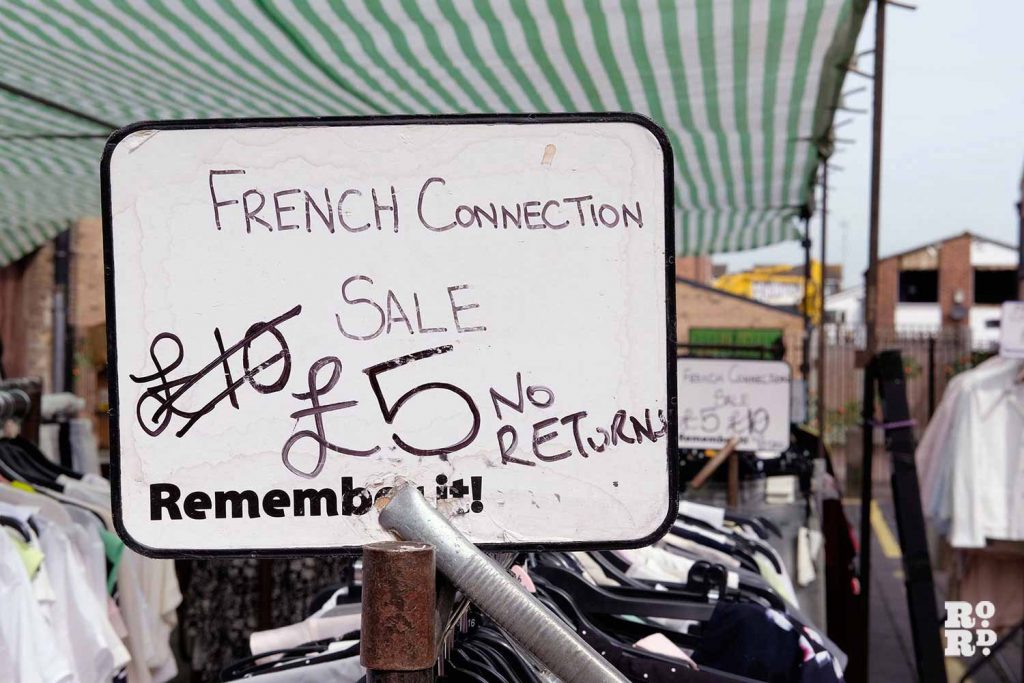 FRENCH CONNECTION
SALE
£10 £5 NO
RETURNS
Remember it!
FRENCH CONNECTION
SALE
£5 £10
Remember it!
RORD